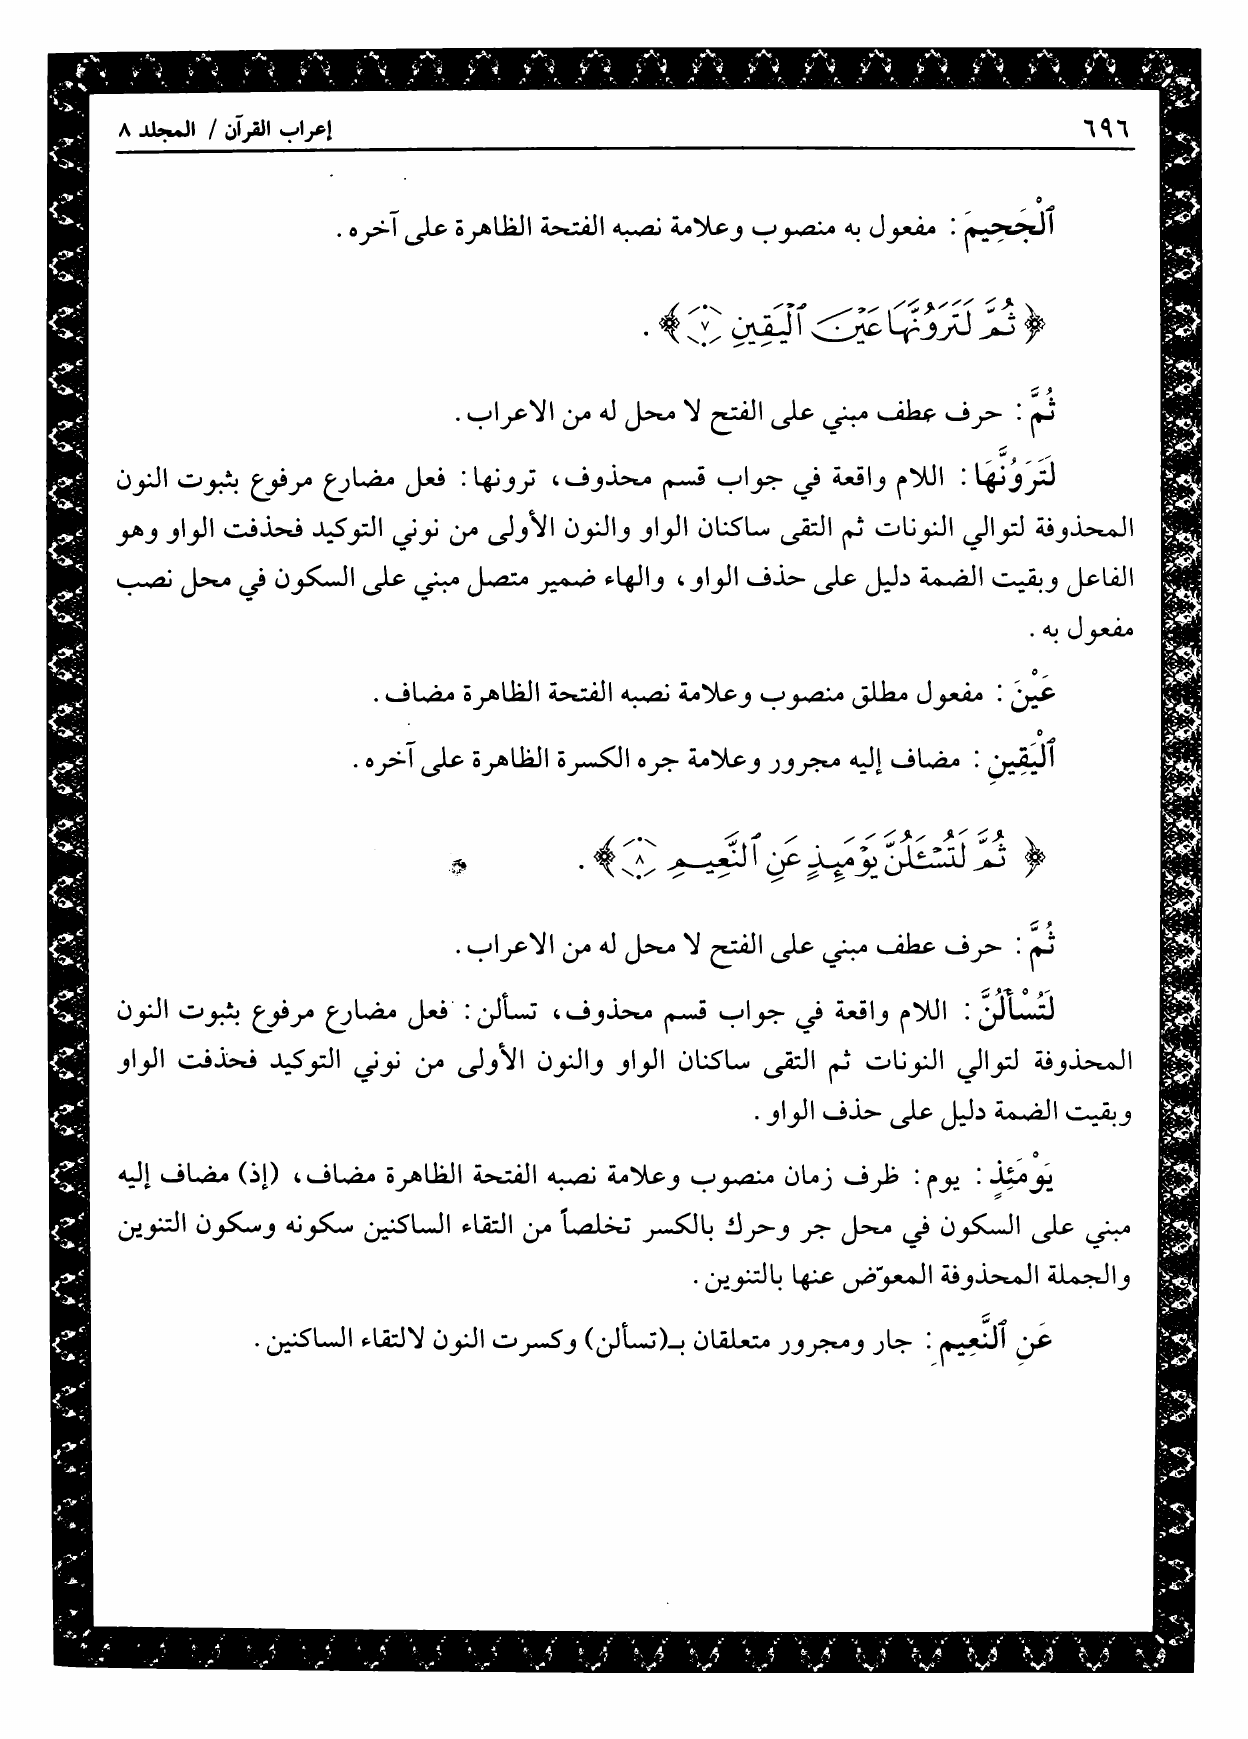 ٦٩٦
إعراب القرآن / المجلد ٨
ٱلْجَحِيمَ : مفعول به منصوب وعلامة نصبه الفتحة الظاهرة على آخره .
﴿ ثُمَّ لَتَرَوُنَّهَا عَيْنَ ٱلْيَقِينِ ٧ ﴾ .
ثُمَّ : حرف عطف مبني على الفتح لا محل له من الاعراب .
لَتَرَوُنَّهَا : اللام واقعة في جواب قسم محذوف، ترونها : فعل مضارع مرفوع بثبوت النون
المحذوفة لتوالي النونات ثم التقى ساكنان الواو والنون الأولى من نوني التوكيد فحذفت الواو وهو
الفاعل وبقيت الضمة دليل على حذف الواو، والهاء ضمير متصل مبني على السكون في محل نصب
مفعول به .
عَيْنَ : مفعول مطلق منصوب وعلامة نصبه الفتحة الظاهرة مضاف .
ٱلْيَقِينِ : مضاف إليه مجرور وعلامة جره الكسرة الظاهرة على آخره .
﴿ ثُمَّ لَتُسْـَٔلُنَّ يَوْمَئِذٍ عَنِ ٱلنَّعِيمِ ٨ ﴾ .
ثُمَّ : حرف عطف مبني على الفتح لا محل له من الاعراب .
لَتُسْأَلُنَّ : اللام واقعة في جواب قسم محذوف، تسألن : فعل مضارع مرفوع بثبوت النون
المحذوفة لتوالي النونات ثم التقى ساكنان الواو والنون الأولى من نوني التوكيد فحذفت الواو
وبقيت الضمة دليل على حذف الواو .
يَوْمَئِذٍ : يوم : ظرف زمان منصوب وعلامة نصبه الفتحة الظاهرة مضاف، (إذ) مضاف إليه
مبني على السكون في محل جر وحرك بالكسر تخلصاً من التقاء الساكنين سكونه وسكون التنوين
والجملة المحذوفة المعوّض عنها بالتنوين .
عَنِ ٱلنَّعِيمِ : جار ومجرور متعلقان بـ(تسألن) وكسرت النون لالتقاء الساكنين .